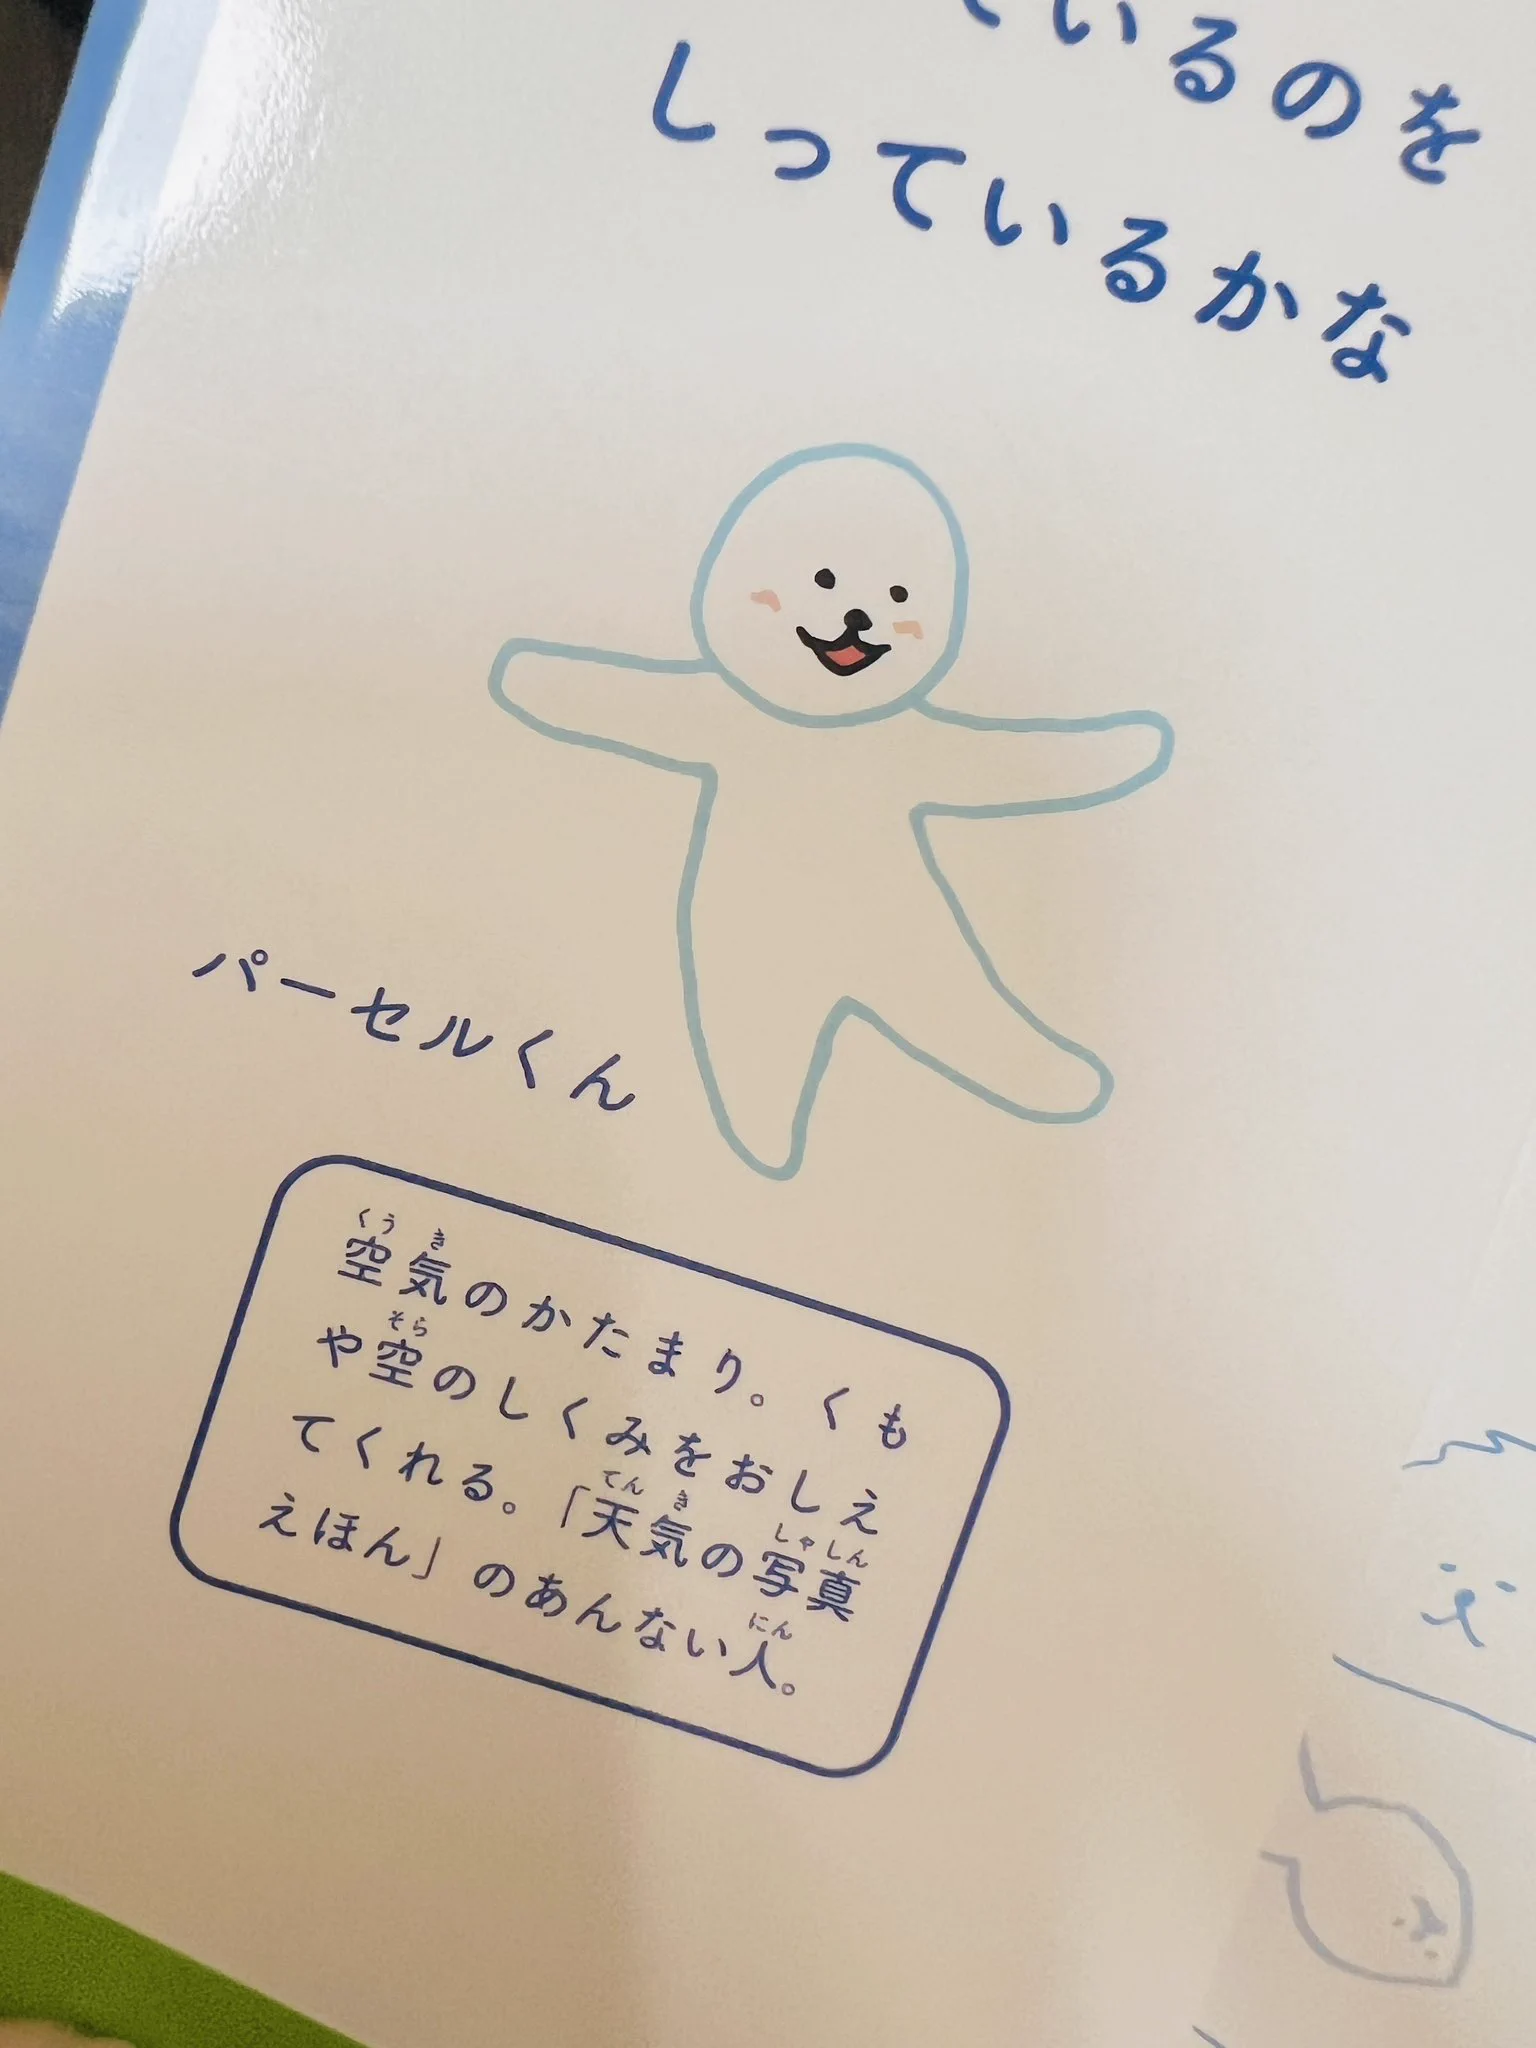 いるのを
しっているかな
パーセルくん
空気のかたまり。くも
や空のしくみをおしえ
てくれる。「天気の写真
えほん」のあんない人。